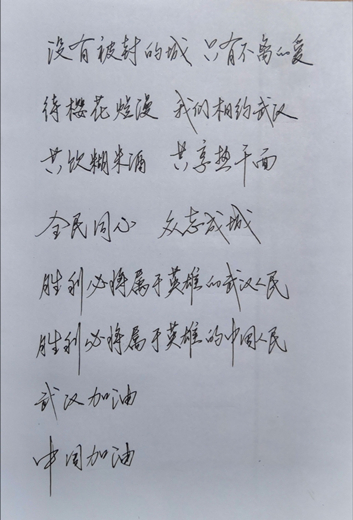 没有被封的城 只有不离的爱
待樱花烂漫 我们相约武汉
共饮糊米酒 共享热干面
全民同心 众志成城
胜利必将属于英雄的武汉人民
胜利必将属于英雄的中国人民
武汉加油
中国加油